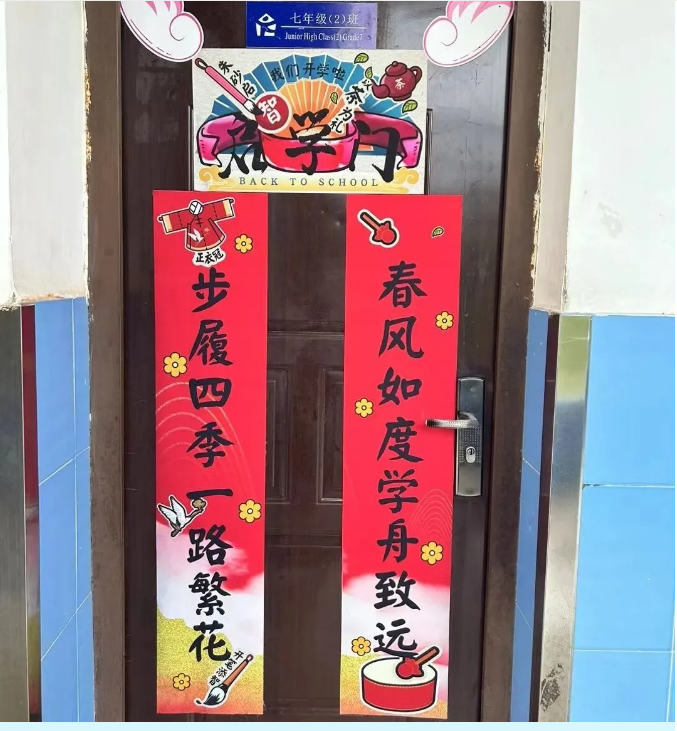 七年级(2)班
Junior High Class(2) Grade7
我们开学啦
朱砂启智
以茶为礼
茶
启学门
BACK TO SCHOOL
春风如度学舟致远
步履四季一路繁花
正衣冠
开笔添智